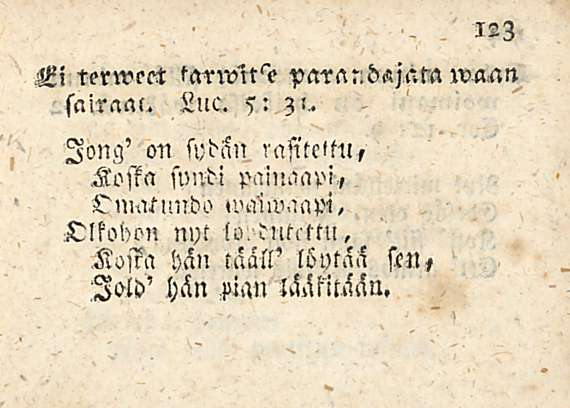 123
Ei terweet tarwitse parandajata waan
sairaat. Luc. 5: 31.
Jong' on sydän rasitettu,
Koska syndi painaapi,
Omatundo waiwaapi,
Olkohon nyt lohdutettu,
Koska hän tääll' löytää sen,
Jold' hän pian lääkitään.